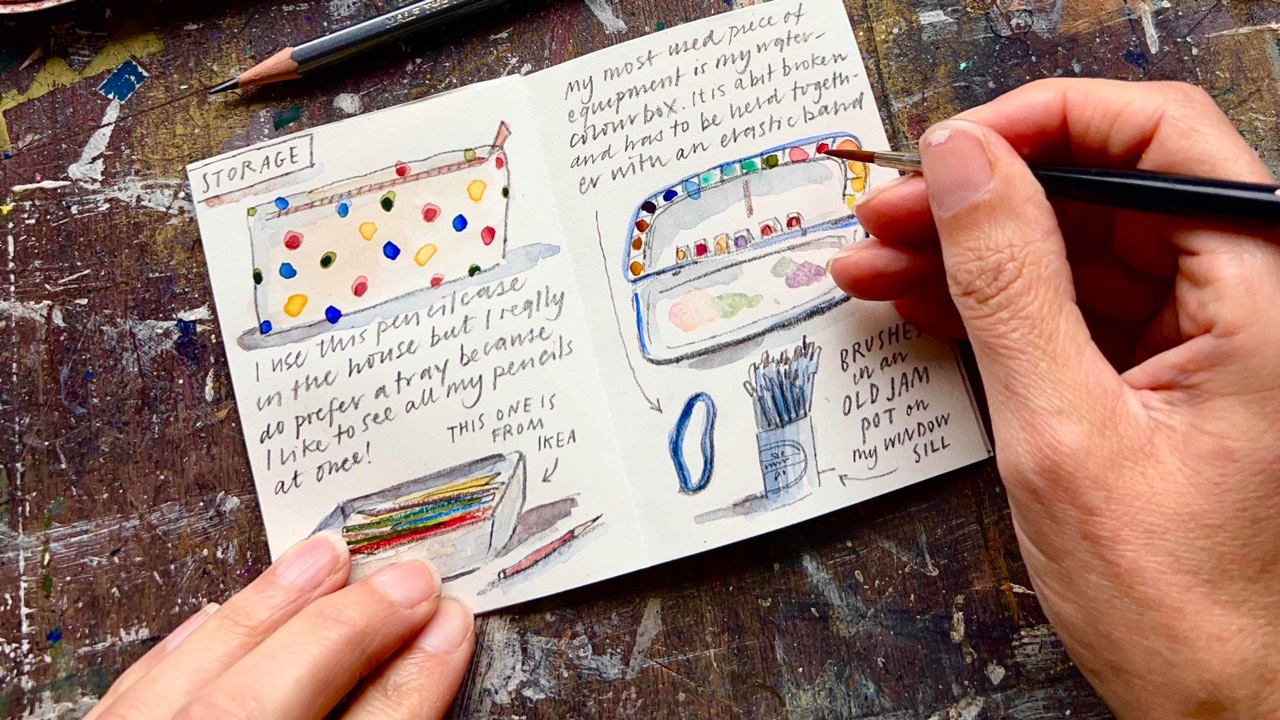 HALF TO
STORAGE
I use this pencilcase
in the house but I really
do prefer a tray because
I like to see all my pencils
at once!
THIS ONE IS
FROM
IKEA
my most used piece of
equipment is my water-
colour box. It is a bit broken
and has to be held togeth-
er with an elastic band
BRUSHES
in an
OLD JAM
POT on
my WINDOW
SILL